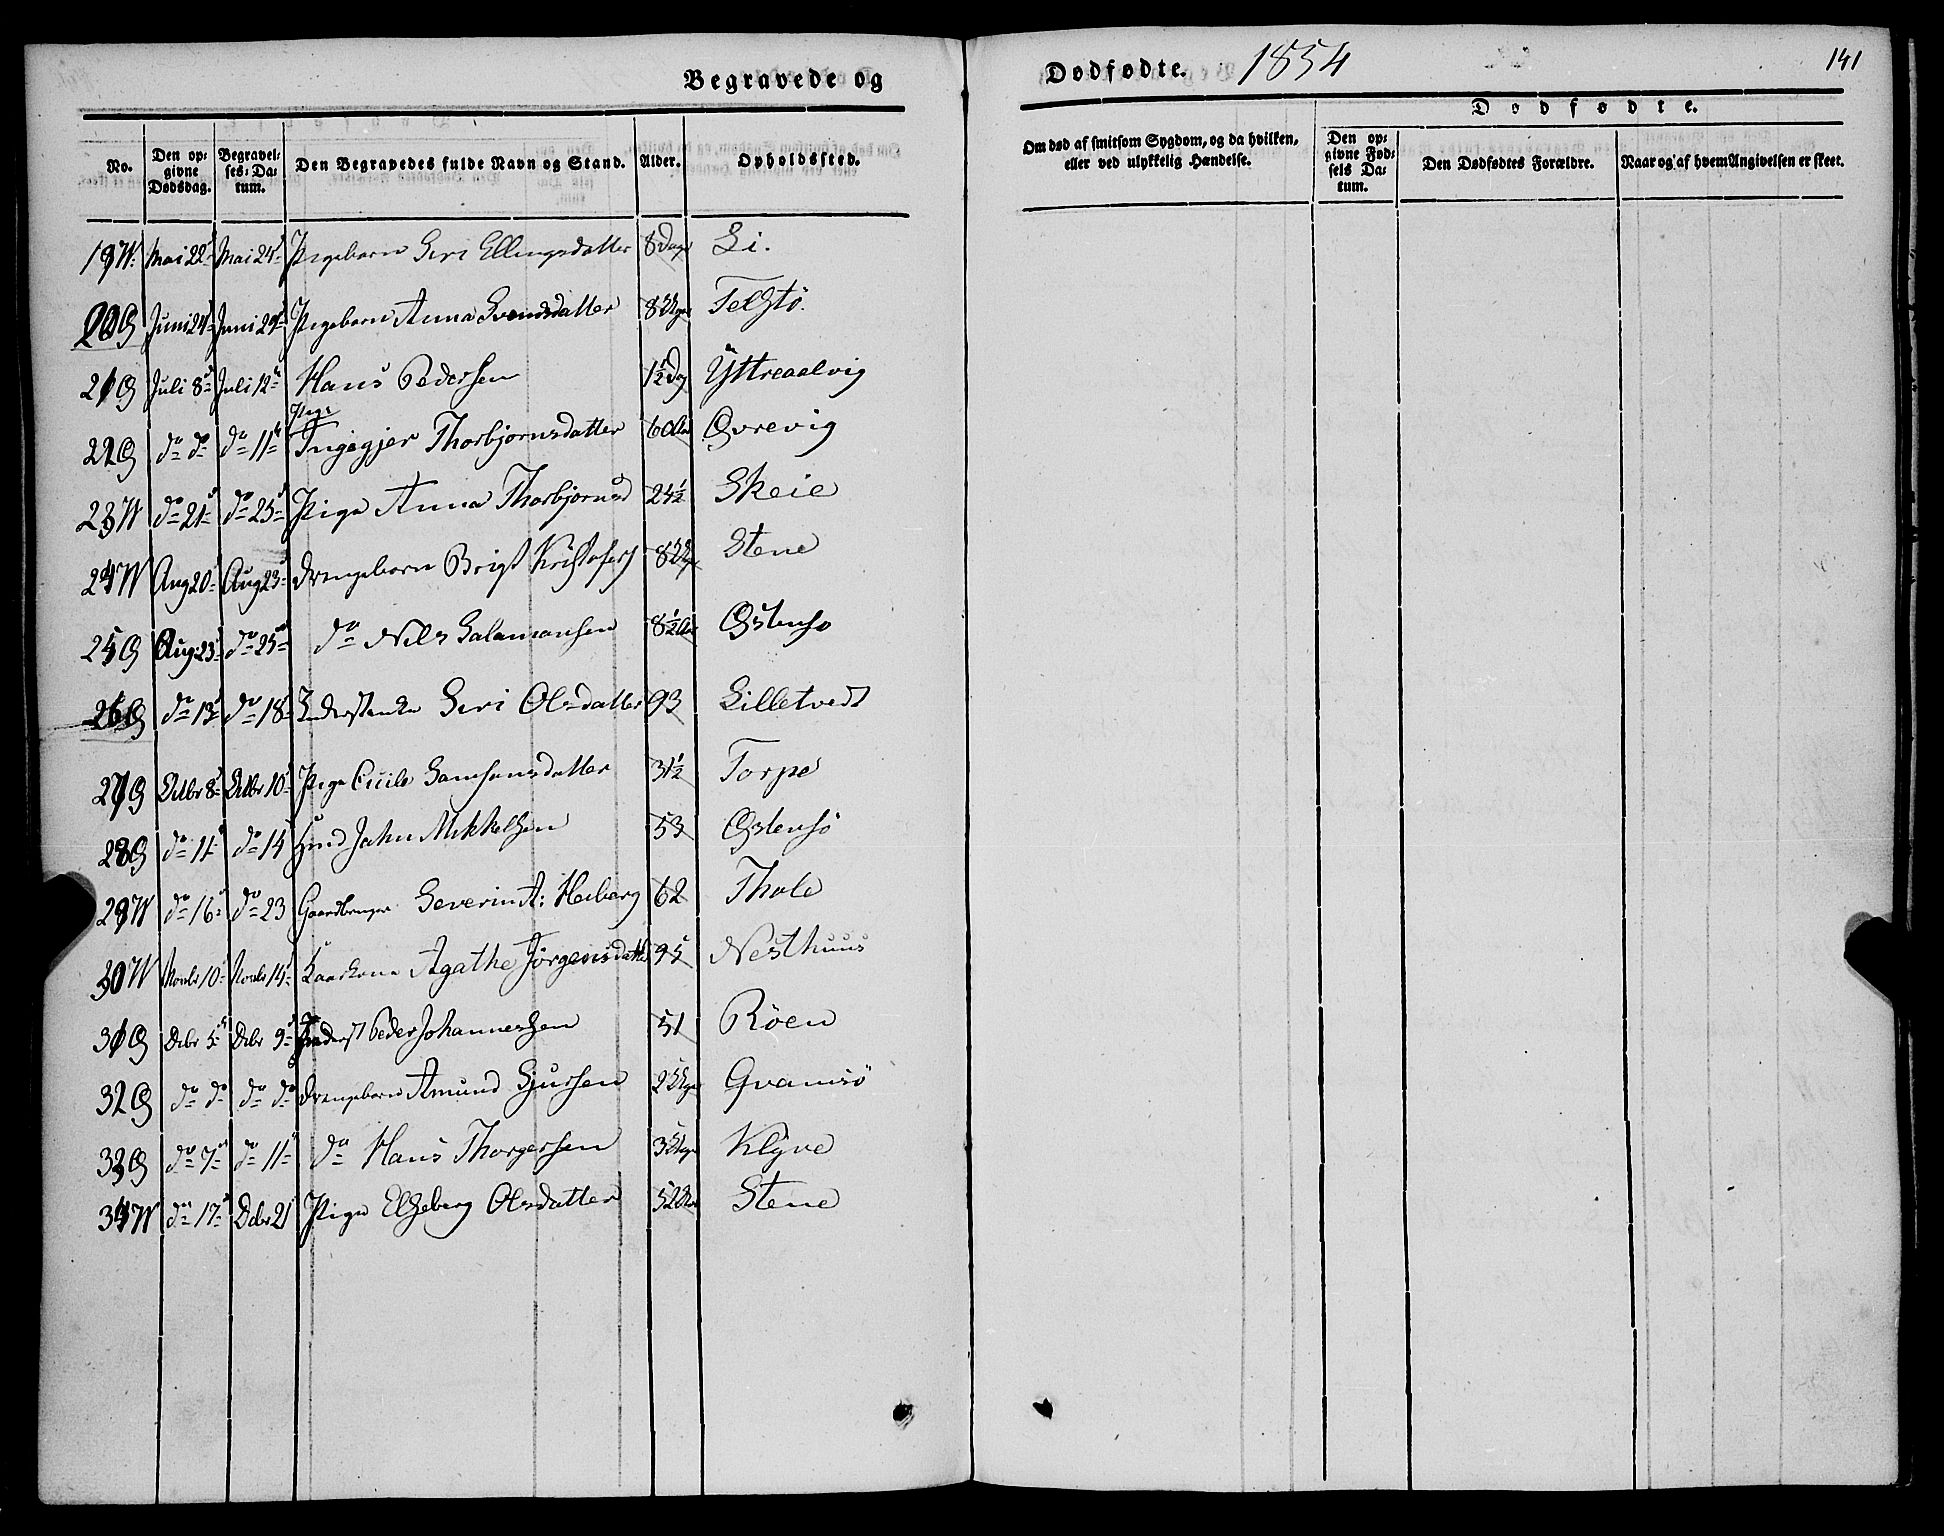 Begravede og
Dødfødte. 1854
141
No. | Den opgivne Dødsdag. | Begravelses-Datum. | Den Begravedes fulde Navn og Stand. | Alder. | Opholdssted.
Om død af smitsom Sygdom, og da hvilken, eller ved ulykkelig Hændelse. | Dødfødte. | Den opgivne Fødsels Datum. | Den Dødfødtes Forældre. | Naar og af hvem Angivelsen er skeet.
19 | Mai 22 | Mai 24 | Pigebarn Siri Ellingsdatter | 8 Dage | Li.
20 | Juni 24 | Juni 29 | Pigebarn Anna Svendsdatter | 8 Uger | Telstö.
21 | Juli 8 | Juli 12 | Hans Pedersen | 1½ Dag | Yttreaalvig
22 | do do | do 11 | Pige Ingegjer Thorbjørnsdatter | 6 Aar | Øvrevig
23 | do 21 | do 25 | Pige Anna Thorbjørnsd | 24½ | Skeie
24 | Aug 20 | Aug 23 | Drengebarn Brigt Kristofers | 8 | Stene
25 | Aug: 23 | do 25 | do Nils Salamonsen | 8½ Aar | Østensø
26 | do 13 | do 18 | Siri Olsdatter | 93 | Lilletvedt
27 | Octbr 8 | Octbr 10 | Pige Cicile Samsonsdatter | 31½ | Torpe
28 | do 11 | do 14 | John Mikkelsen | 53 | Østensö
29 | do 16 | do 23 | Gaardbruger Severin A: Heiberg | 62 | Tholo
30 | Novbr 10 | Novbr 14 | Kaarkone Agathe Jörgensdatter | 95 | Nesthuus
31 | Debr 5 | Debr 9 | Inderst Peder Johannessen | 51 | Röen
32 | do do | do do | Drengebarn Amund Sjursen | 2 Uger | Qvamsö
33 | do 7 | do 11 | do Hans Thorgersen | 3 Uger | Klyve
34 | do 17 | Debr 21 | Pige Elseberg Olsdatter | 52 Aar | Stene